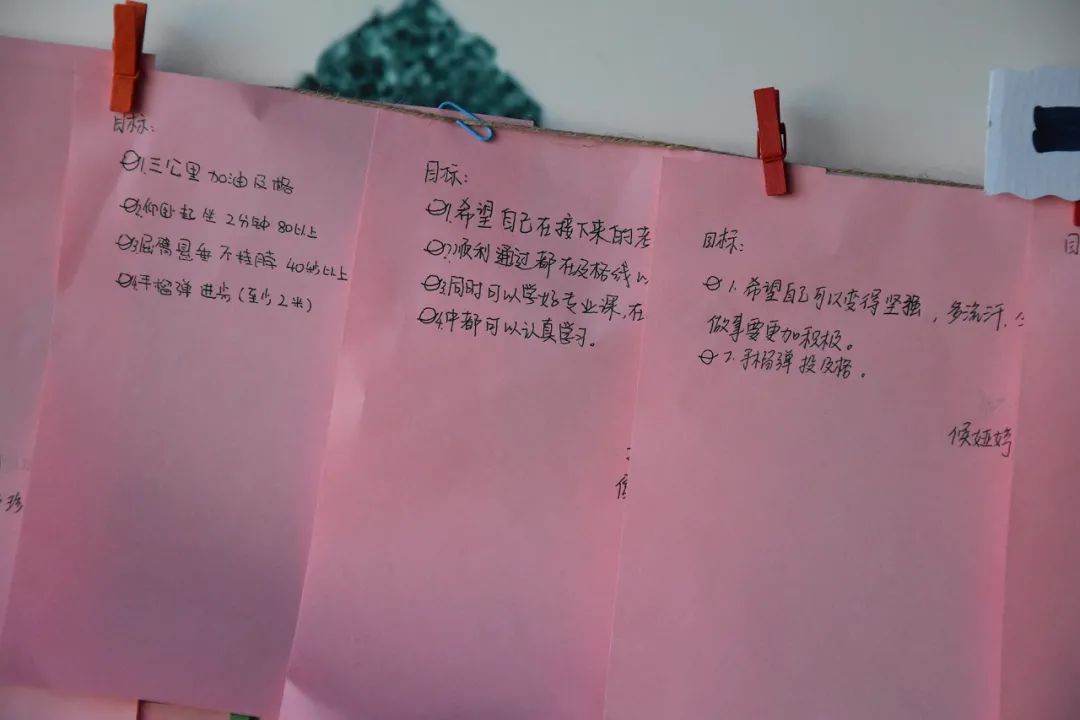 目标:
1.三公里 加油 及格
2.仰卧起坐 2分钟 80以上
3.屈臂悬垂 不挂脖 40秒以上
4.手榴弹 进步(至少2米)
目标:
1.希望自己在接下来的考
2.顺利通过都在及格线以
3.同时可以学好专业课,在
4.中都可以认真学习。
目标:
1.希望自己可以变得坚强,多流汗,
做事要更加积极。
2.手榴弹投及格。
侯娅婷
珍
目